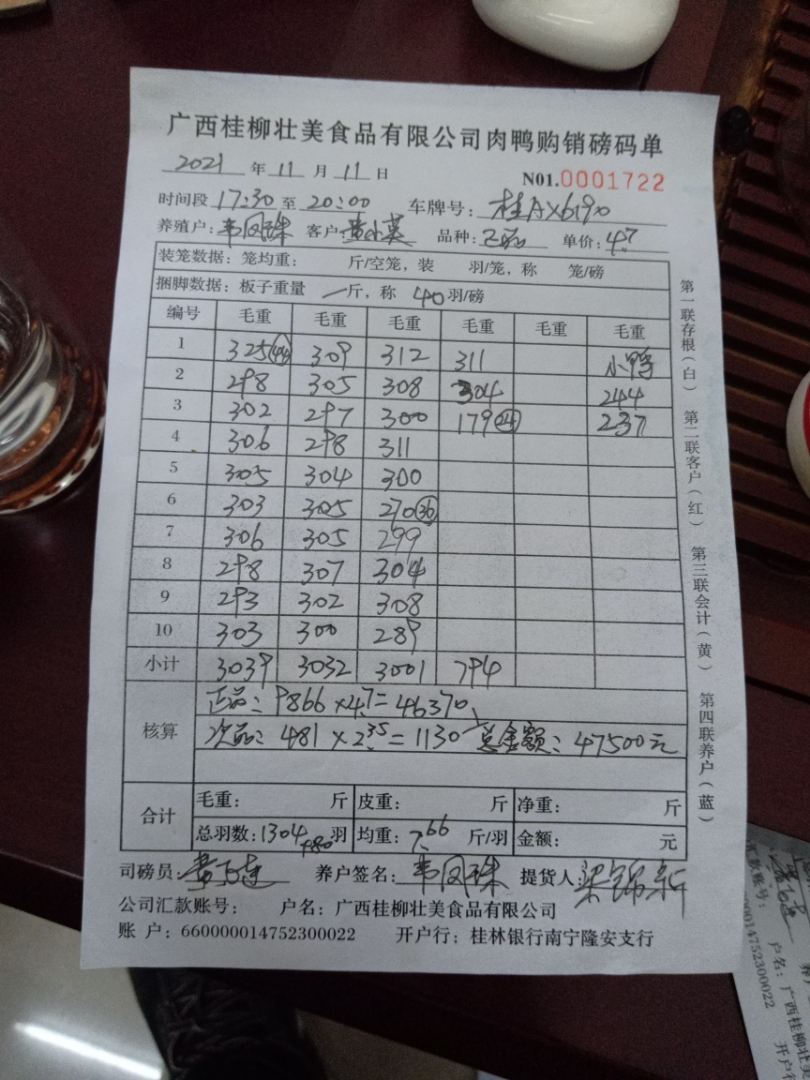 广西桂柳壮美食品有限公司肉鸭购销磅码单
2021 年 11 月 11 日 N01.0001722
时间段 17:30 至 20:00 车牌号: 桂AX6190
养殖户: 韦凤珠 客户: 黄小英 品种: 单价: 4.7
装笼数据: 笼均重: 斤/空笼, 装 羽/笼, 称 笼/磅
捆脚数据: 板子重量 一斤, 称 40 羽/磅
编号 毛重 毛重 毛重 毛重 毛重 毛重
1 325(44) 309 312 311 小鸭
2 298 305 308 304 244
3 302 297 300 179(24) 237
4 306 298 311
5 305 304 300
6 303 305 270(36)
7 306 305 299
8 298 307 304
9 293 302 308
10 303 300 289
小计 3039 3032 3001 794
核算
正品: 9866×4.7=46370
次品: 481×2.35=1130 总金额: 47500元
合计
毛重: 斤 皮重: 斤 净重: 斤
总羽数: 1304+80 羽 均重: 7.66 斤/羽 金额: 元
司磅员: 养户签名: 韦凤珠 提货人 梁锦新
公司汇款账号: 户名: 广西桂柳壮美食品有限公司
账 户: 660000014752300022 开户行: 桂林银行南宁隆安支行
第一联存根(白) 第二联客户(红) 第三联会计(黄) 第四联养户(蓝)
汇款账号:
户名: 广西桂柳壮美
0014752300022
开户行